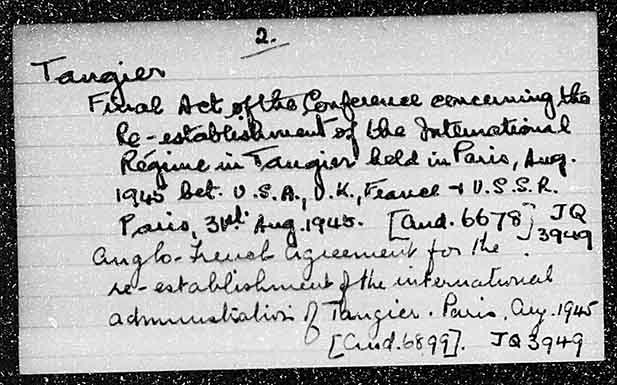 2.
Tangier
Final Act of the Conference concerning the
Re-establishment of the International
Régime in Tangier held in Paris, Aug.
1945 bet. U.S.A., U.K., France + U.S.S.R.
Paris, 31st Aug. 1945. [Cmd. 6678] JQ 3949
Anglo-French agreement for the
re-establishment of the international
administration of Tangier. Paris, Aug. 1945
[Cmd. 6899]. JQ 3949